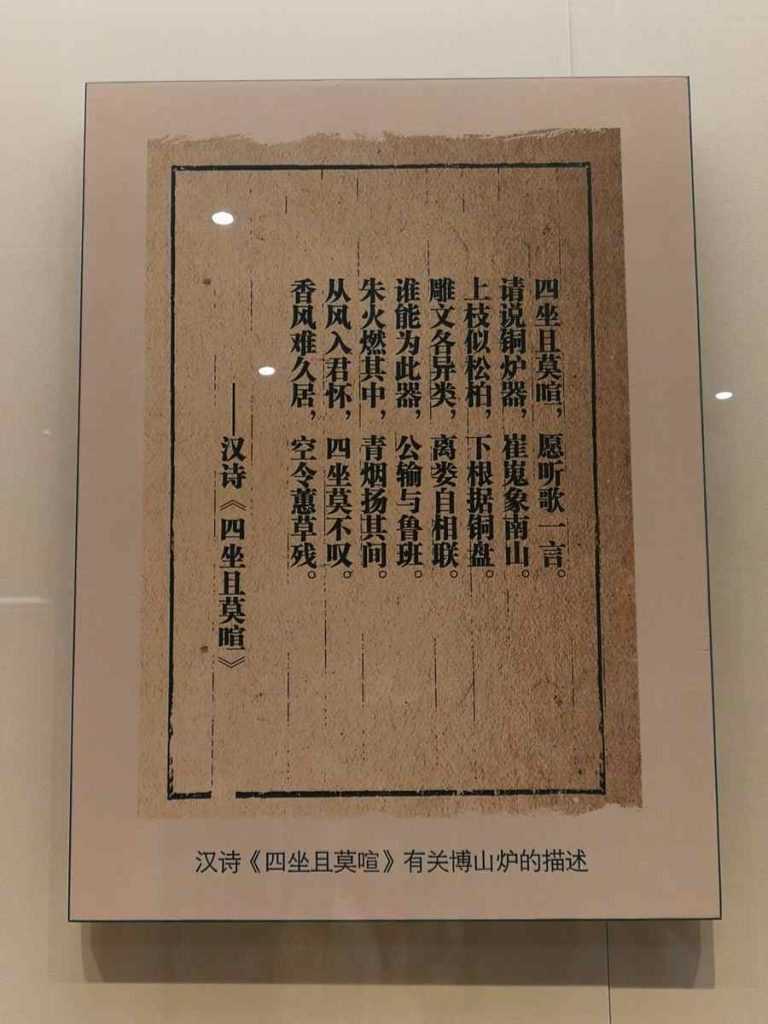 四坐且莫暄，愿听歌一言。
请说铜炉器，崔嵬象南山。
上枝似松柏，下根据铜盘。
雕文各异类，离娄自相联。
谁能为此器，公输与鲁班。
朱火燃其中，青烟扬其间。
从风入君怀，四坐莫不叹。
香风难久居，空令蕙草残。
——汉诗《四坐且莫暄》
汉诗《四坐且莫喧》有关博山炉的描述